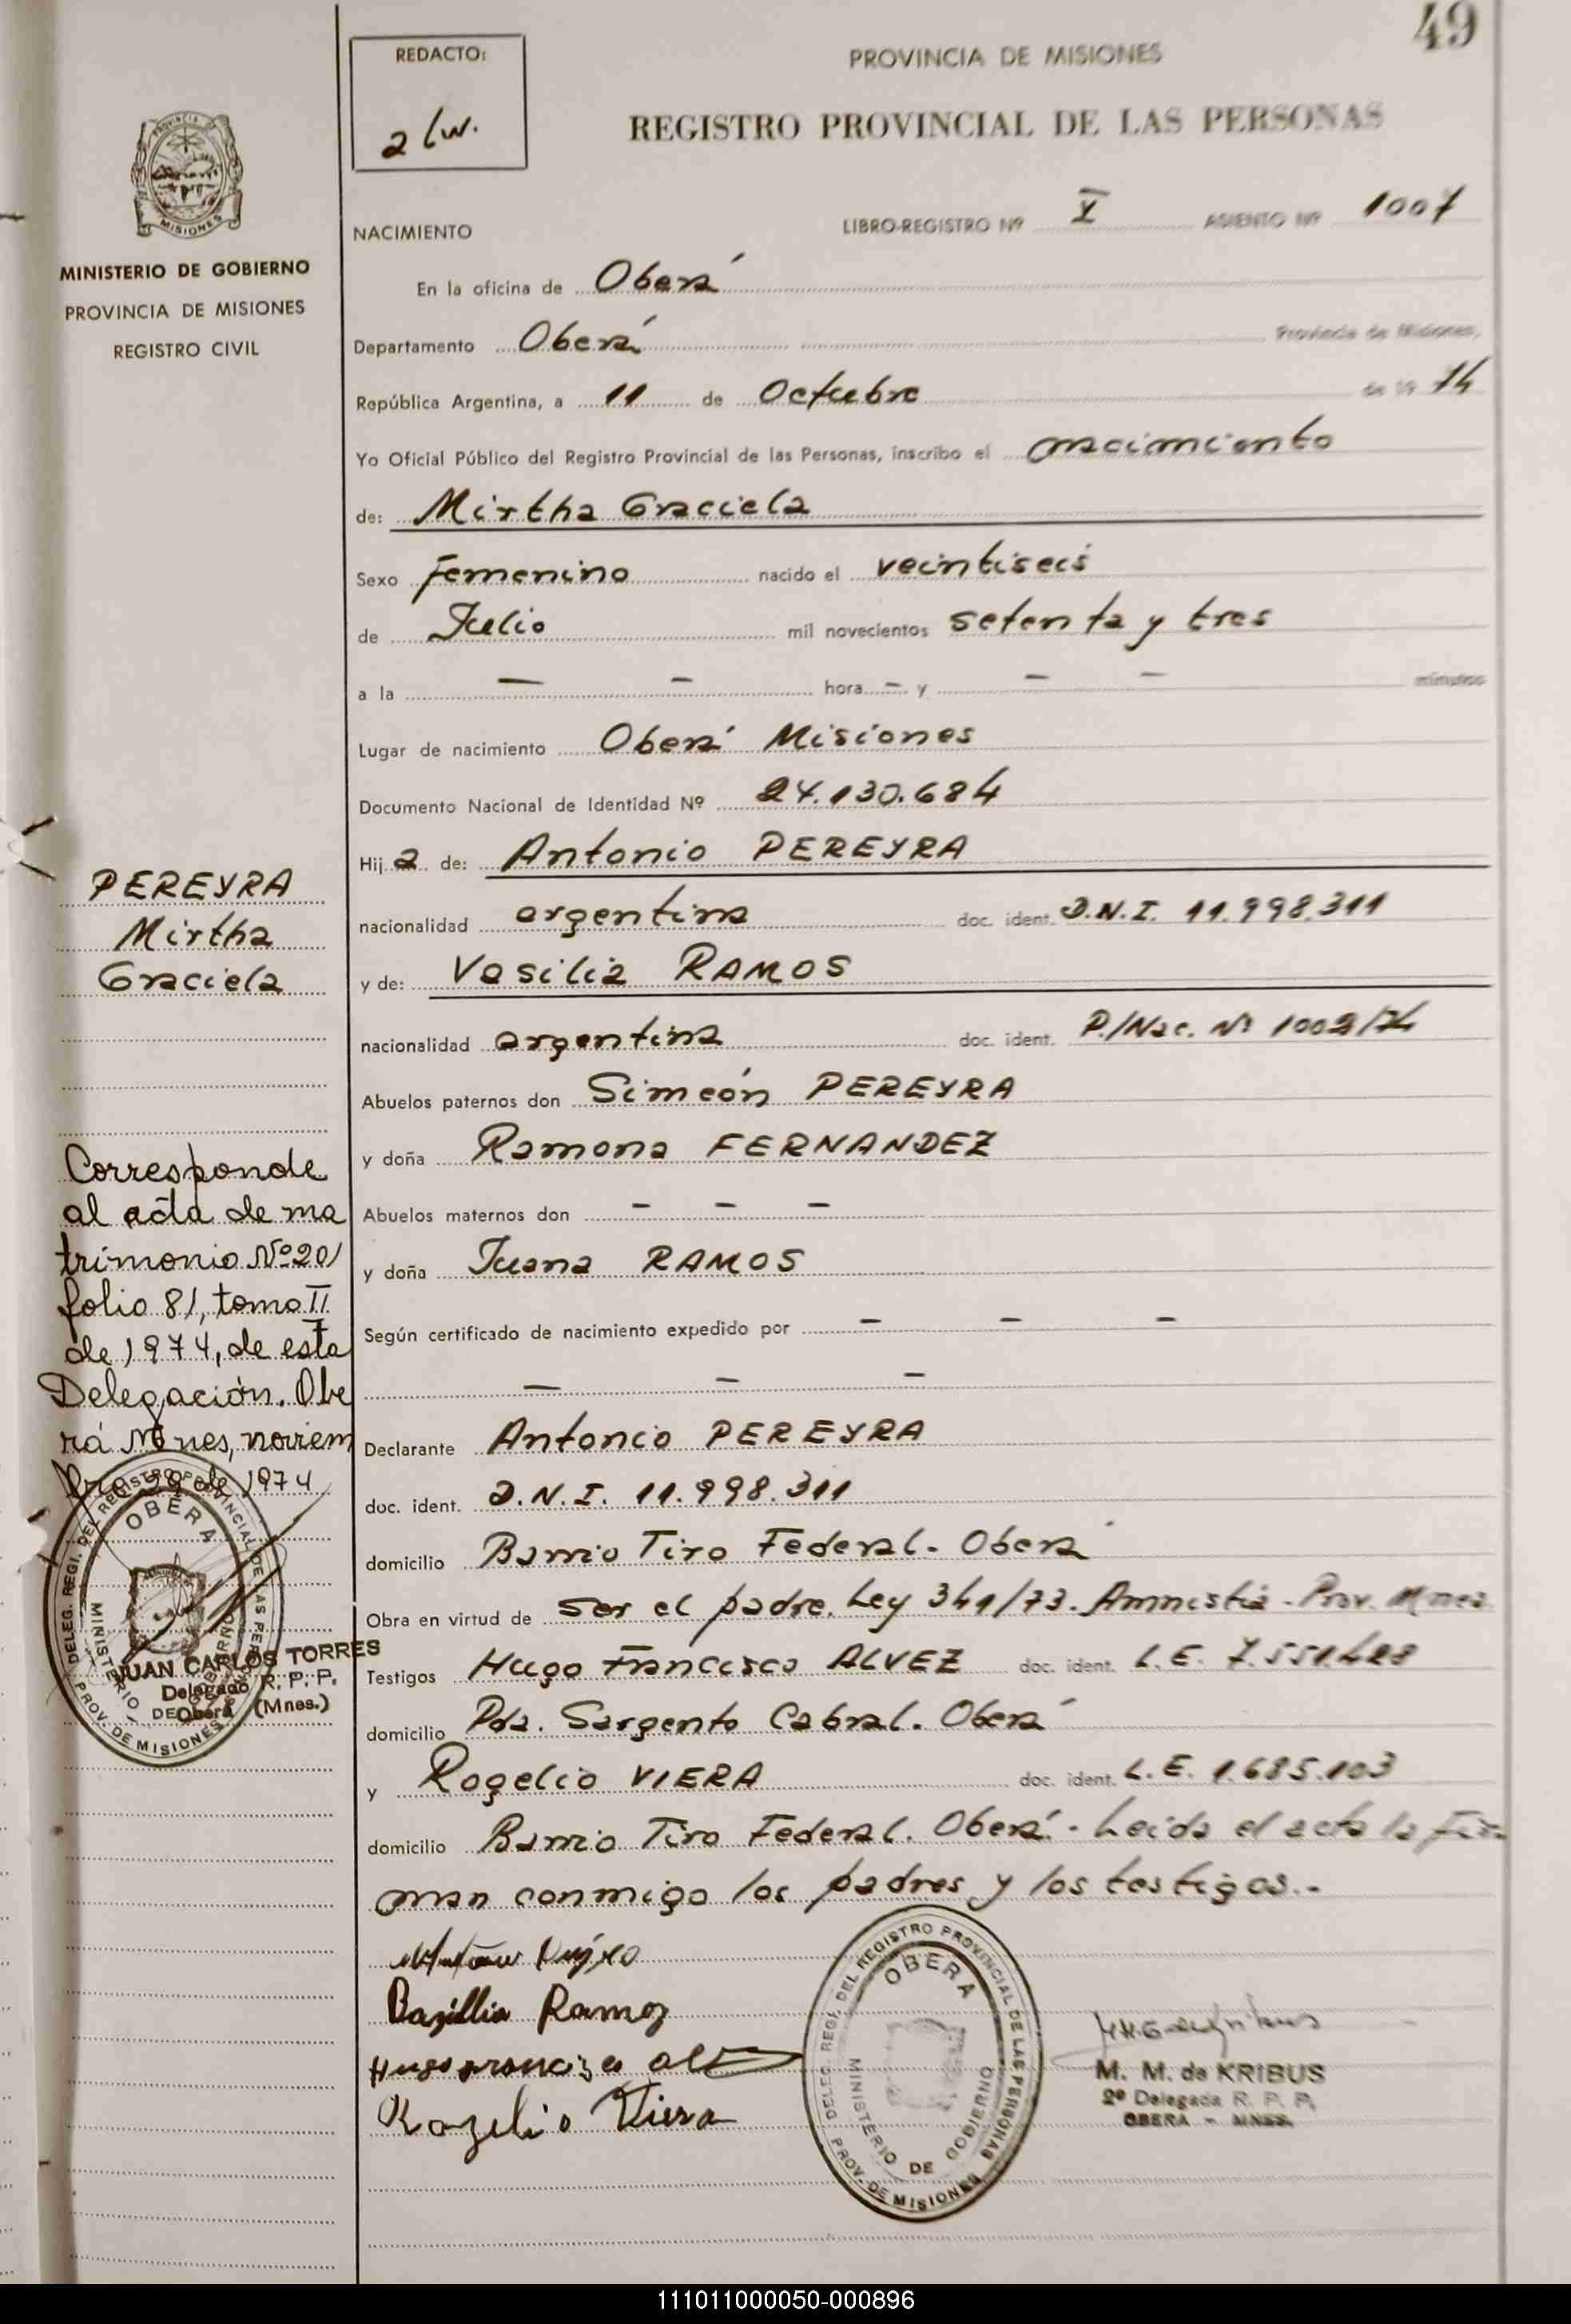 49
REDACTO:
PROVINCIA DE MISIONES
REGISTRO PROVINCIAL DE LAS PERSONAS
PROVINCIA DE
MISIONES
MINISTERIO DE GOBIERNO
PROVINCIA DE MISIONES
REGISTRO CIVIL
NACIMIENTO LIBRO-REGISTRO Nº X ASIENTO Nº 1007
En la oficina de Oberá
Departamento Oberá Provincia de Misiones,
República Argentina, a 11 de Octubre de 19 74
Yo Oficial Público del Registro Provincial de las Personas, inscribo el nacimiento
de: Mirtha Graciela
Sexo femenino nacido el veintiseis
de Julio mil novecientos setenta y tres
a la — — hora — y — — minutos
Lugar de nacimiento Oberá Misiones
Documento Nacional de Identidad Nº 24.130.684
Hij a de: Antonio PEREYRA
nacionalidad argentina doc. ident. D.N.I. 11.998.311
y de: Vasilia RAMOS
nacionalidad argentina doc. ident. P./Nac. Nº 1002/74
Abuelos paternos don Simeón PEREYRA
y doña Ramona FERNANDEZ
Abuelos maternos don — — —
y doña Juana RAMOS
Según certificado de nacimiento expedido por — — —
— — —
Declarante Antonio PEREYRA
doc. ident. D.N.I. 11.998.311
domicilio Barrio Tiro Federal. Oberá
Obra en virtud de ser el padre. Ley 341/73. Amnistia - Prov. Mnes.
Testigos Hugo Francisco ALVEZ doc. ident. L.E. 7.551.428
domicilio Pda. Sargento Cabral. Oberá
y Rogelio VIERA doc. ident. L.E. 1.685.103
domicilio Barrio Tiro Federal. Oberá. - Leida el acta la fir
man conmigo los padres y los testigos. -
Bazillia Ramoz
Rogelio Viera
DELEG. REGI. DEL REGISTRO PROVINCIAL DE LAS PERSONAS
OBERA
MINISTERIO DE GOBIERNO
PROV. DE MISIONES
M. M. de KRIBUS
2º Delegada R. P. P.
OBERA - MNES.
PEREYRA
Mirtha
Graciela
Corresponde
al acta de ma
trimonio Nº 201
folio 81, tomo II
de 1974, de esta
Delegación. Obe
rá Mnes, noviem
bre 29 de 1974
DELEG. REGI. DEL REGISTRO PROVINCIAL DE LAS PERSONAS
OBERA
MINISTERIO DE GOBIERNO
PROV. DE MISIONES
JUAN CARLOS TORRES
Delegado R. P. P.
Oberá (Mnes.)
111011000050-000896